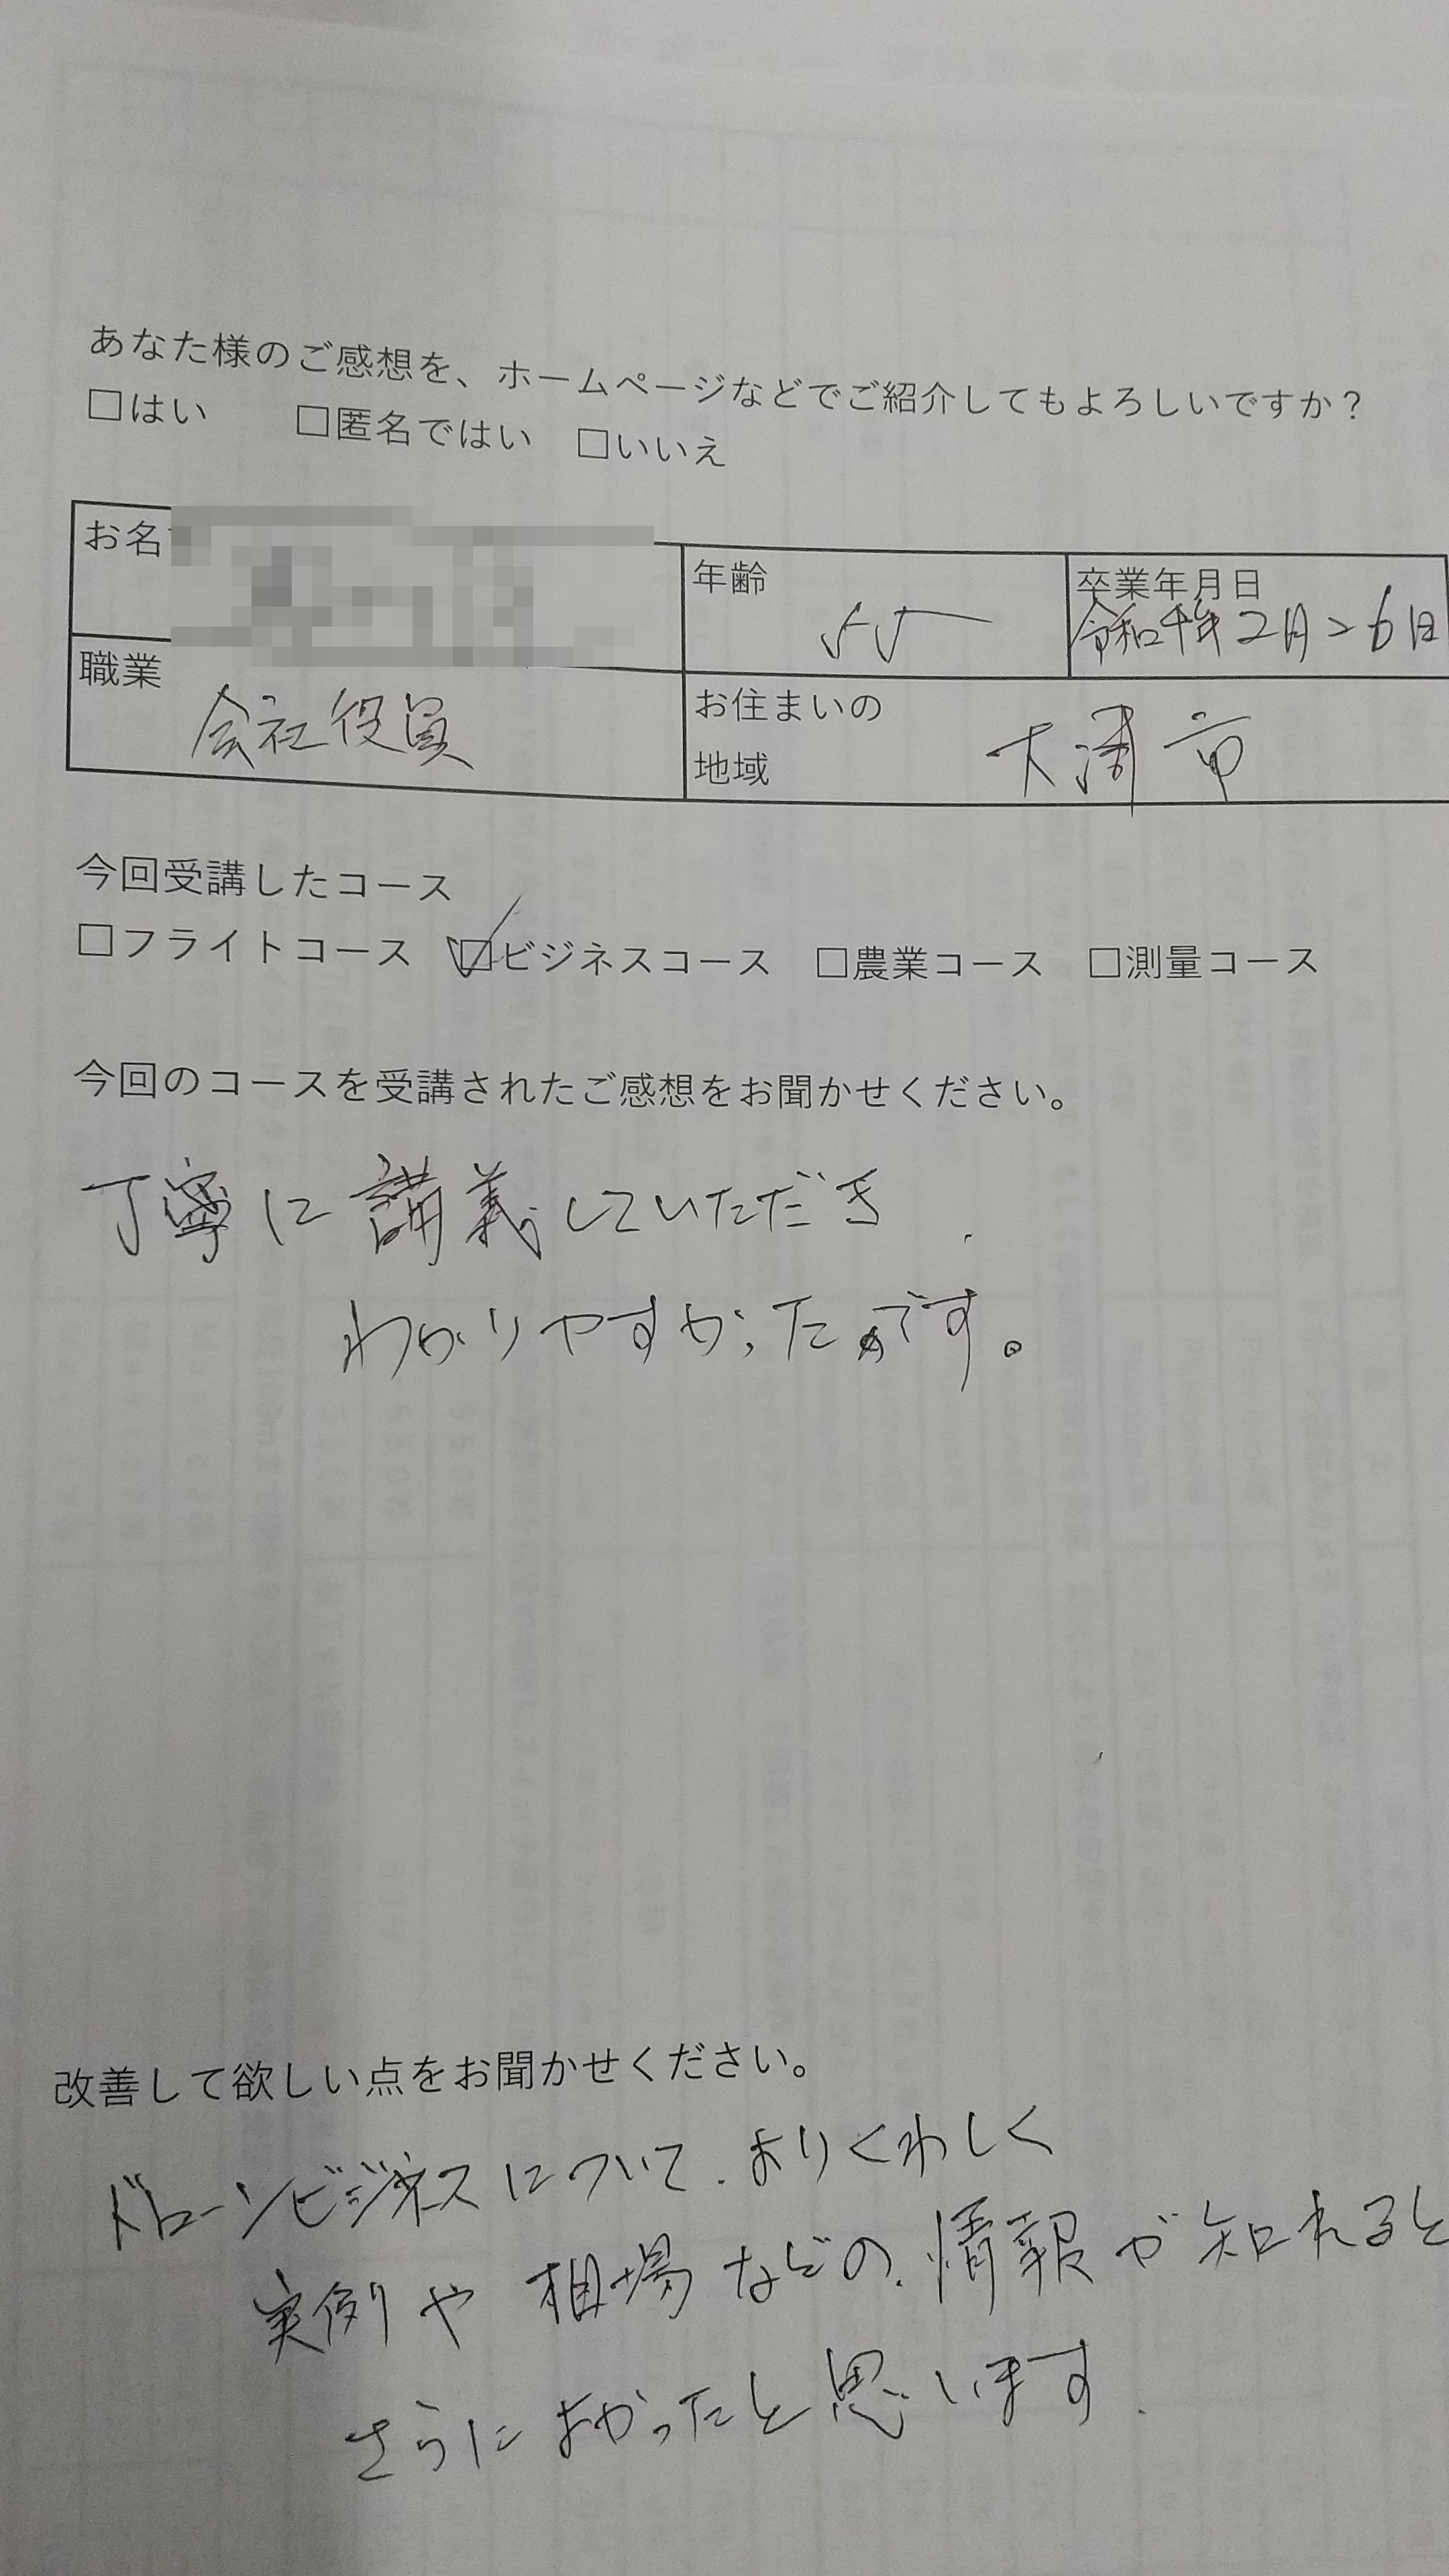 あなた様のご感想を、ホームページなどでご紹介してもよろしいですか？
□はい □匿名ではい □いいえ
お名
年齢
55
卒業年月日
令和4年2月26日
職業
会社役員
お住まいの
地域
大津市
今回受講したコース
□フライトコース ☑ビジネスコース □農業コース □測量コース
今回のコースを受講されたご感想をお聞かせください。
丁寧に講義していただき、
わかりやすかったです。
改善して欲しい点をお聞かせください。
ドローンビジネスについて、よりくわしく
実例や相場などの、情報が知れると
さらによかったと思います.